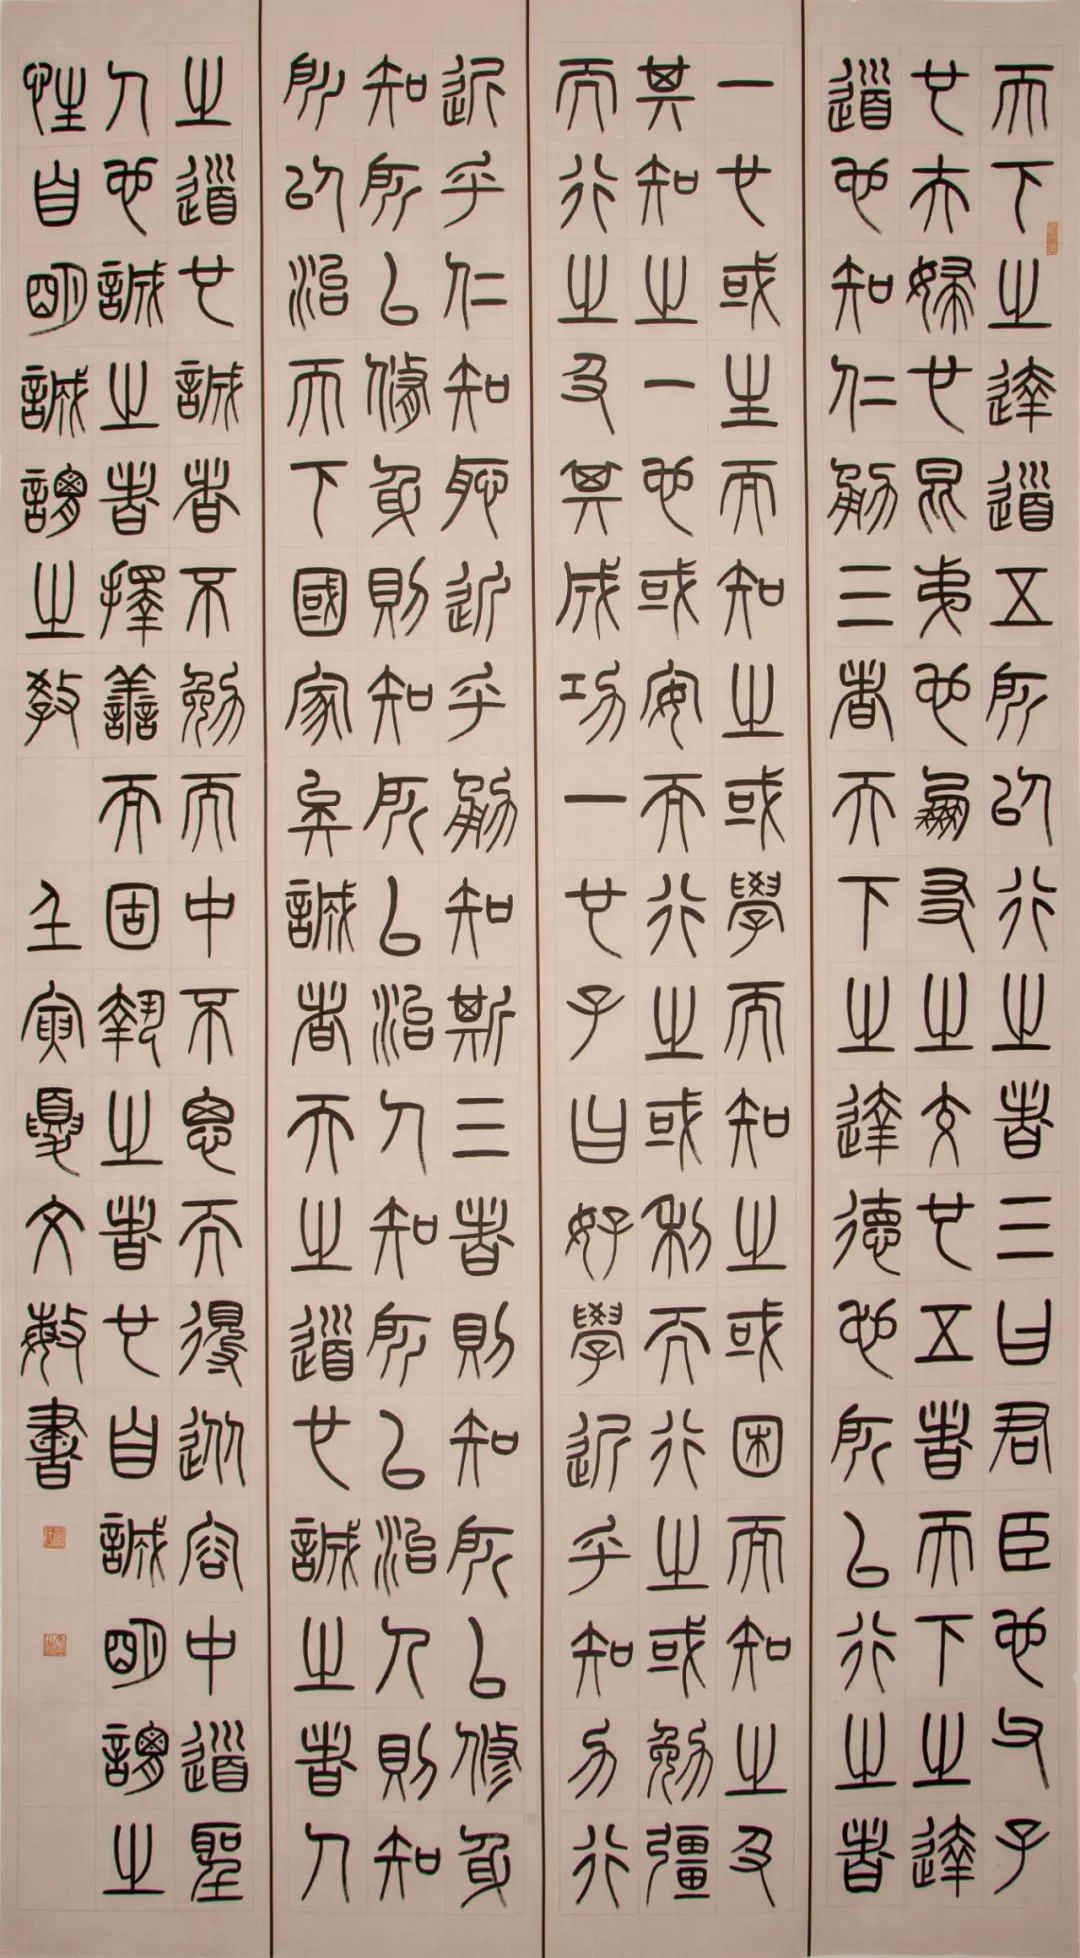 天下之達道五所以行之者三曰君臣也父子
也夫婦也昆弟也朋友之交也五者天下之達
道也知仁勇三者天下之達德也所以行之者
一也或生而知之或學而知之或困而知之及
其知之一也或安而行之或利而行之或勉彊
而行之及其成功一也子曰好學近乎知力行
近乎仁知恥近乎勇知斯三者則知所以修身
知所以修身則知所以治人知所以治人則知
所以治天下國家矣誠者天之道也誠之者人
之道也誠者不勉而中不思而得從容中道聖
人也誠之者擇善而固執之者也自誠明謂之
性自明誠謂之教 壬寅夏文敏書